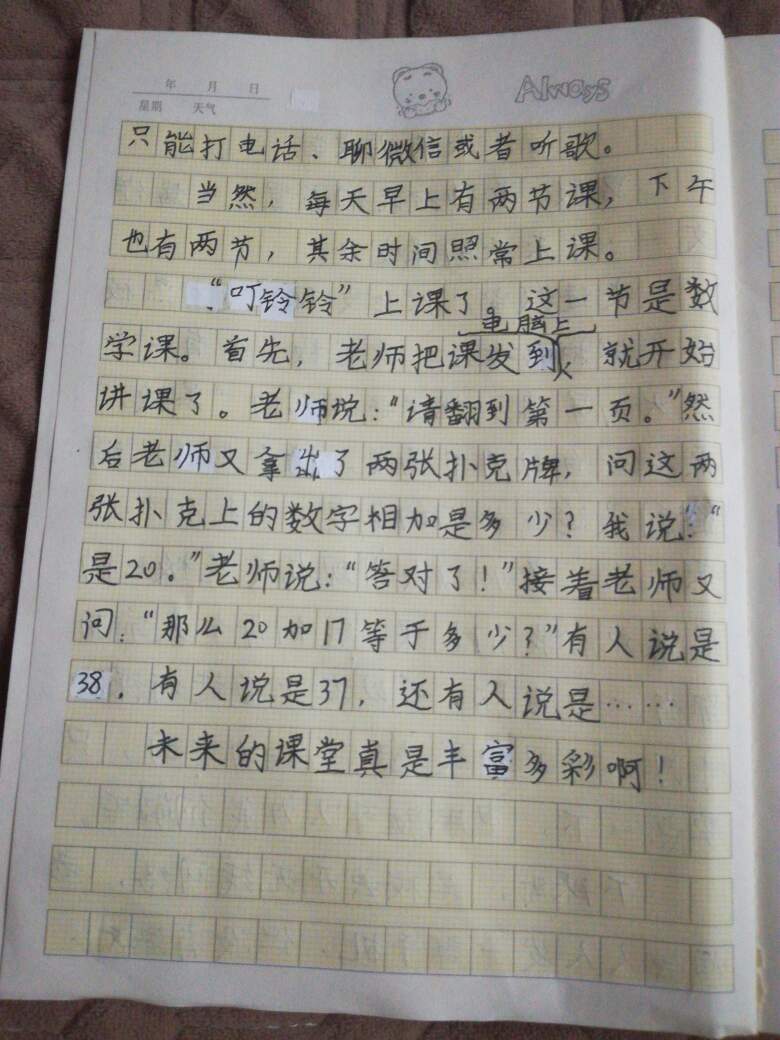 年 月 日
星期 天气
Always
只能打电话、聊微信或者听歌。
当然，每天早上有两节课，下午
也有两节，其余时间照常上课。
“叮铃铃”上课了。这一节是数
电脑上
学课。首先，老师把课发到，就开始
讲课了。老师说：“请翻到第一页。”然
后老师又拿出了两张扑克牌，问这两
张扑克上的数字相加是多少？我说：“
是20。”老师说：“答对了！”接着老师又
问：“那么20加17等于多少？”有人说是
38，有人说是37，还有人说是……
未来的课堂真是丰富多彩啊！